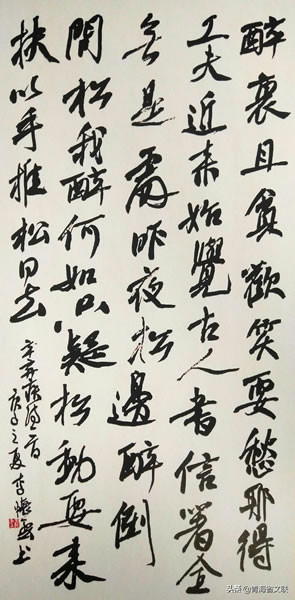 醉裏且貪歡笑要愁那得
工夫近来始覺古人書信著全
无是處昨夜松邊醉倒
問松我醉何如只疑松動要来
扶以手推松曰去
辛弃疾词一首
庚子之夏李
头条 @青海省文联